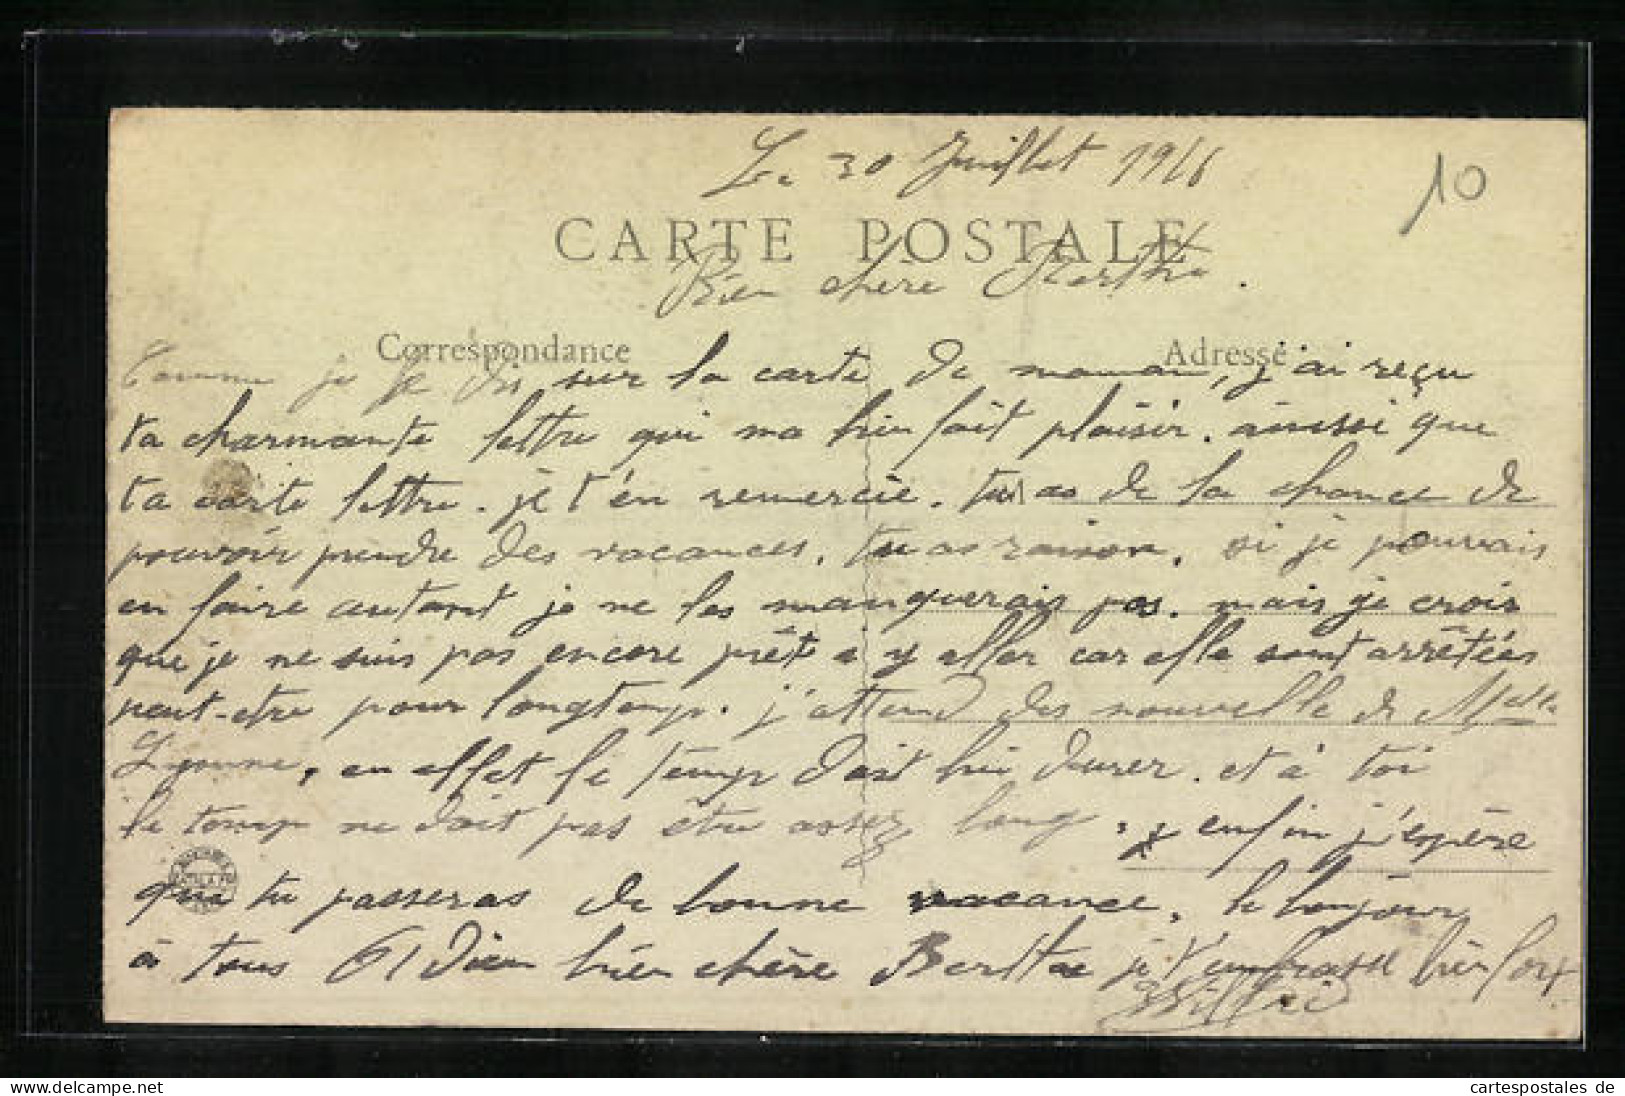 Le 30 Juillet 1916
10
CARTE POSTALE
Bien chère Berthe.
Correspondance
Adresse
Comme je te dis sur la carte de maman, j'ai reçu
ta charmante lettre qui ma bien fait plaisir. ainssi que
ta carte lettre. je t'en remercie. tu as de la chance de
pouvoir prendre des vacances, tu as raison, si je pouvais
en faire autant je ne les manquerais pas. mais je crois
que je ne suis pas encore prêt a y aller car elle sont arrêtées
peut-etre pour longtemp. j'attend des nouvelle de Melle
Lyonne, en effet le temp doit lui durer. et à toi
le temp ne doit pas être assez long. enfin j'espère
que tu passeras de bonne vacance, le bonjour
à tous Et Dien bien chère Berthe je t'embrasse bien fort
cartespostales de
www.delcampe.net